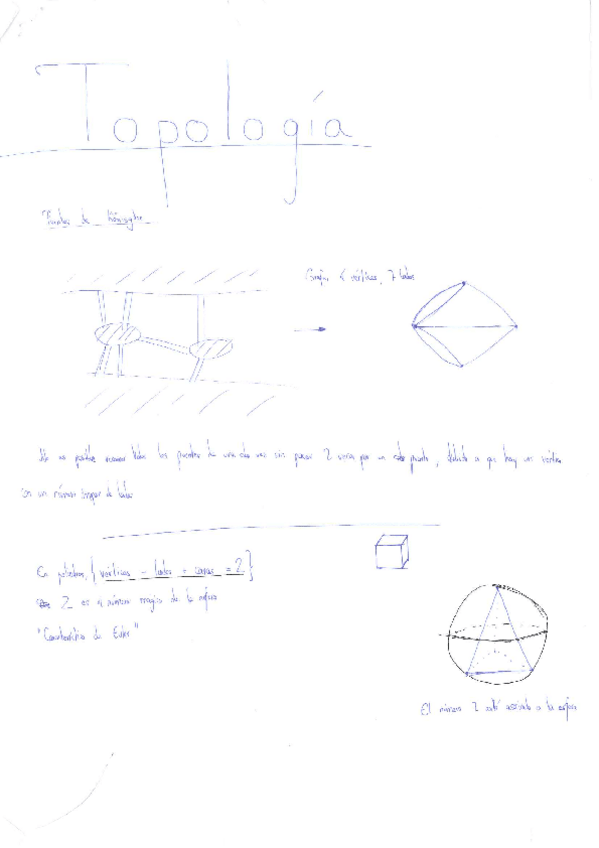 Topología
Puentes de Königsberg
Grafo, 4 vértices, 7 lados
No es posible recorrer todos los puentes de una vez sin pasar 2 veces por un puente, debido a que hay un vértice
con un número impar de lados
En poliedros, { vértices - lados + caras = 2 }
2 es el número mágico de la esfera
"Característica de Euler"
El número 2 está asociado a la esfera